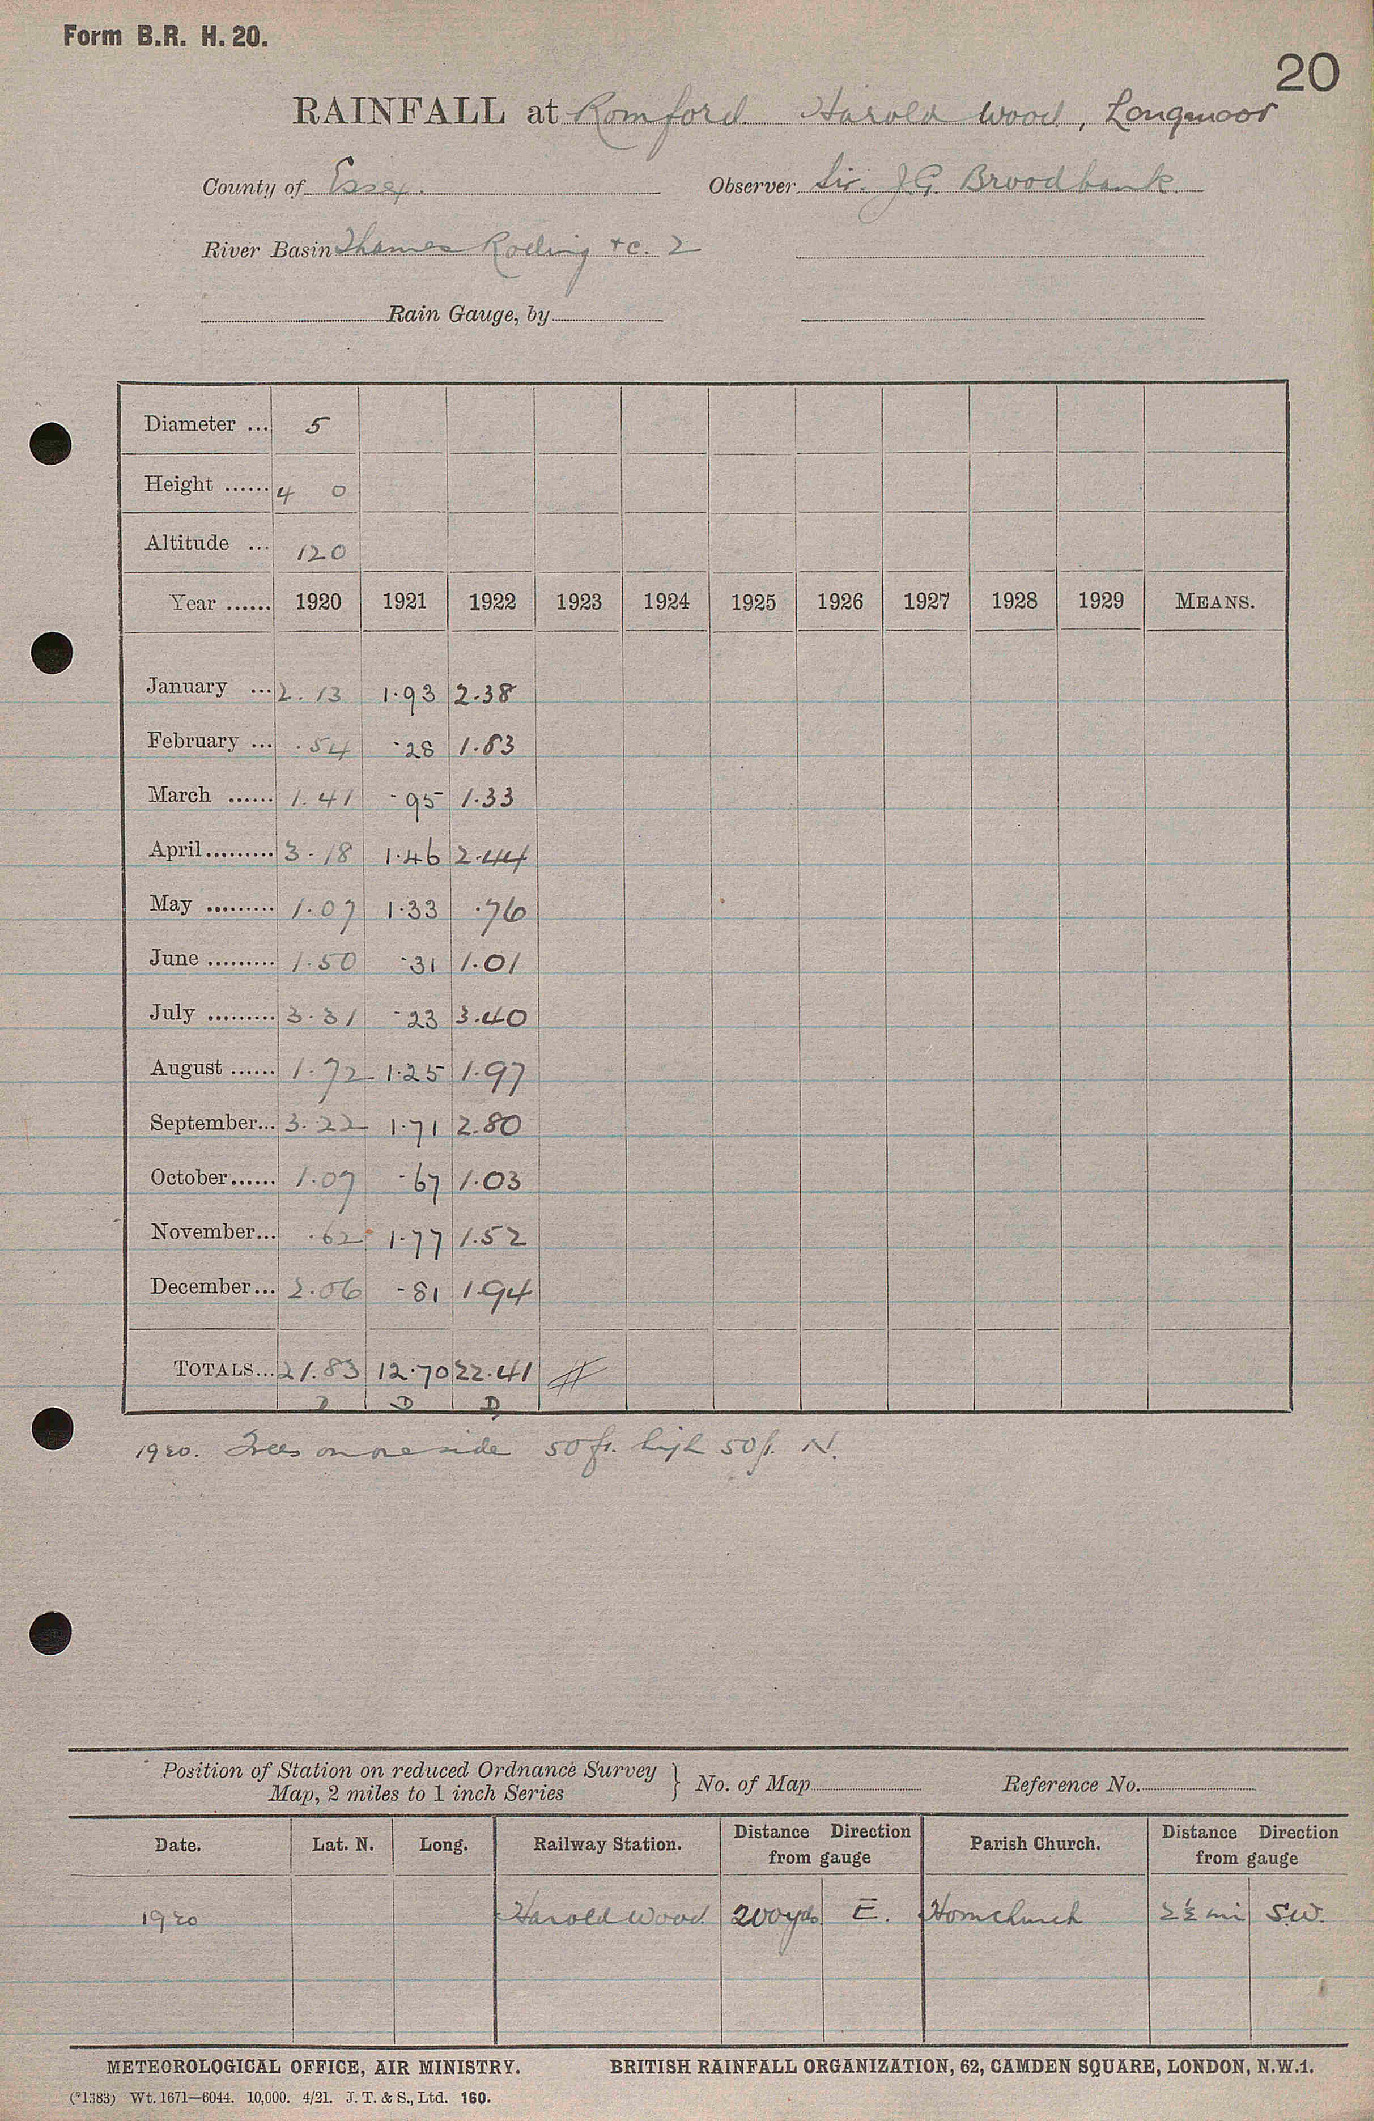 Form B.R. H. 20.
20
RAINFALL at Romford Harold Wood, Longmoor
County of Essex. Observer Sir. J.G. Broodbank.
River Basin Thames Roding &c. 2
Rain Gauge, by
Diameter ... 5
Height ...... 4 0
Altitude ... 120
Year ...... 1920 1921 1922 1923 1924 1925 1926 1927 1928 1929 MEANS.
January ... 2.13 1.93 2.38
February ... .54 .28 1.83
March ...... 1.41 .95 1.33
April......... 3.18 1.46 2.44
May ......... 1.07 1.33 .76
June ......... 1.50 .31 1.01
July ......... 3.31 .23 3.40
August ...... 1.72 1.25 1.97
September... 3.22 1.71 2.80
October...... 1.07 .67 1.03
November... .62 1.77 1.52
December... 2.06 .81 1.94
TOTALS... 21.83 12.70 22.41
D D D
1920. Trees on one side 50 ft. high 50 ft. N.
Position of Station on reduced Ordnance Survey
Map, 2 miles to 1 inch Series } No. of Map Reference No.
Date. Lat. N. Long. Railway Station. Distance Direction from gauge Parish Church. Distance Direction from gauge
1920 Harold Wood 200yds E. Hornchurch 2½ mi S.W.
METEOROLOGICAL OFFICE, AIR MINISTRY. BRITISH RAINFALL ORGANIZATION, 62, CAMDEN SQUARE, LONDON, N.W.1.
(*1383) Wt. 1671—6044. 10,000. 4/21. J. T. & S., Ltd. 160.